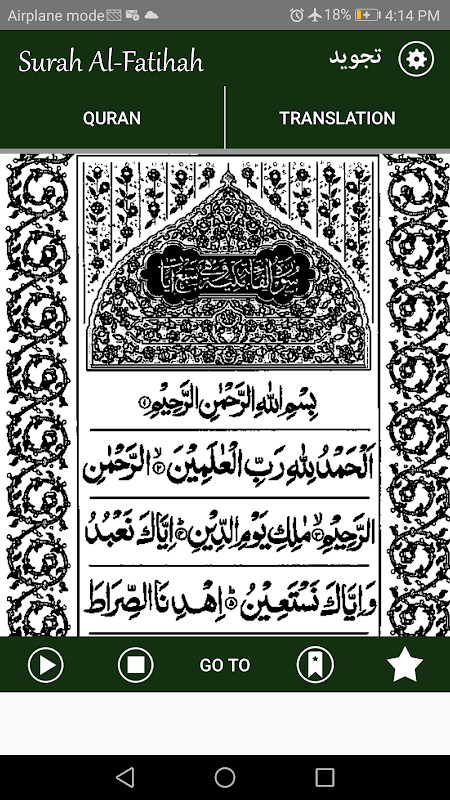 Airplane mode 18% 4:14 PM
Surah Al-Fatihah تجويد
QURAN TRANSLATION
بِسْمِ اللهِ الرَّحْمٰنِ الرَّحِيْمِ ۝۱
اَلْحَمْدُ لِلّٰهِ رَبِّ الْعٰلَمِيْنَ ۙ۝۲ الرَّحْمٰنِ
الرَّحِيْمِ ۙ۝۳ مٰلِكِ يَوْمِ الدِّيْنِ ؕ۝۴ اِيَّاكَ نَعْبُدُ
وَاِيَّاكَ نَسْتَعِيْنُ ؕ۝۵ اِهْدِنَا الصِّرَاطَ
GO TO